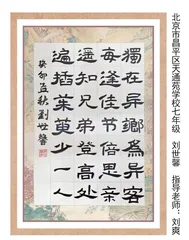 北京市昌平区天通苑学校七年级 刘世馨 指导老师：刘爽
獨在異鄉為異客
每逢佳節倍思親
遙知兄弟登高處
遍插茱萸少一人
癸卯孟秋劉世馨